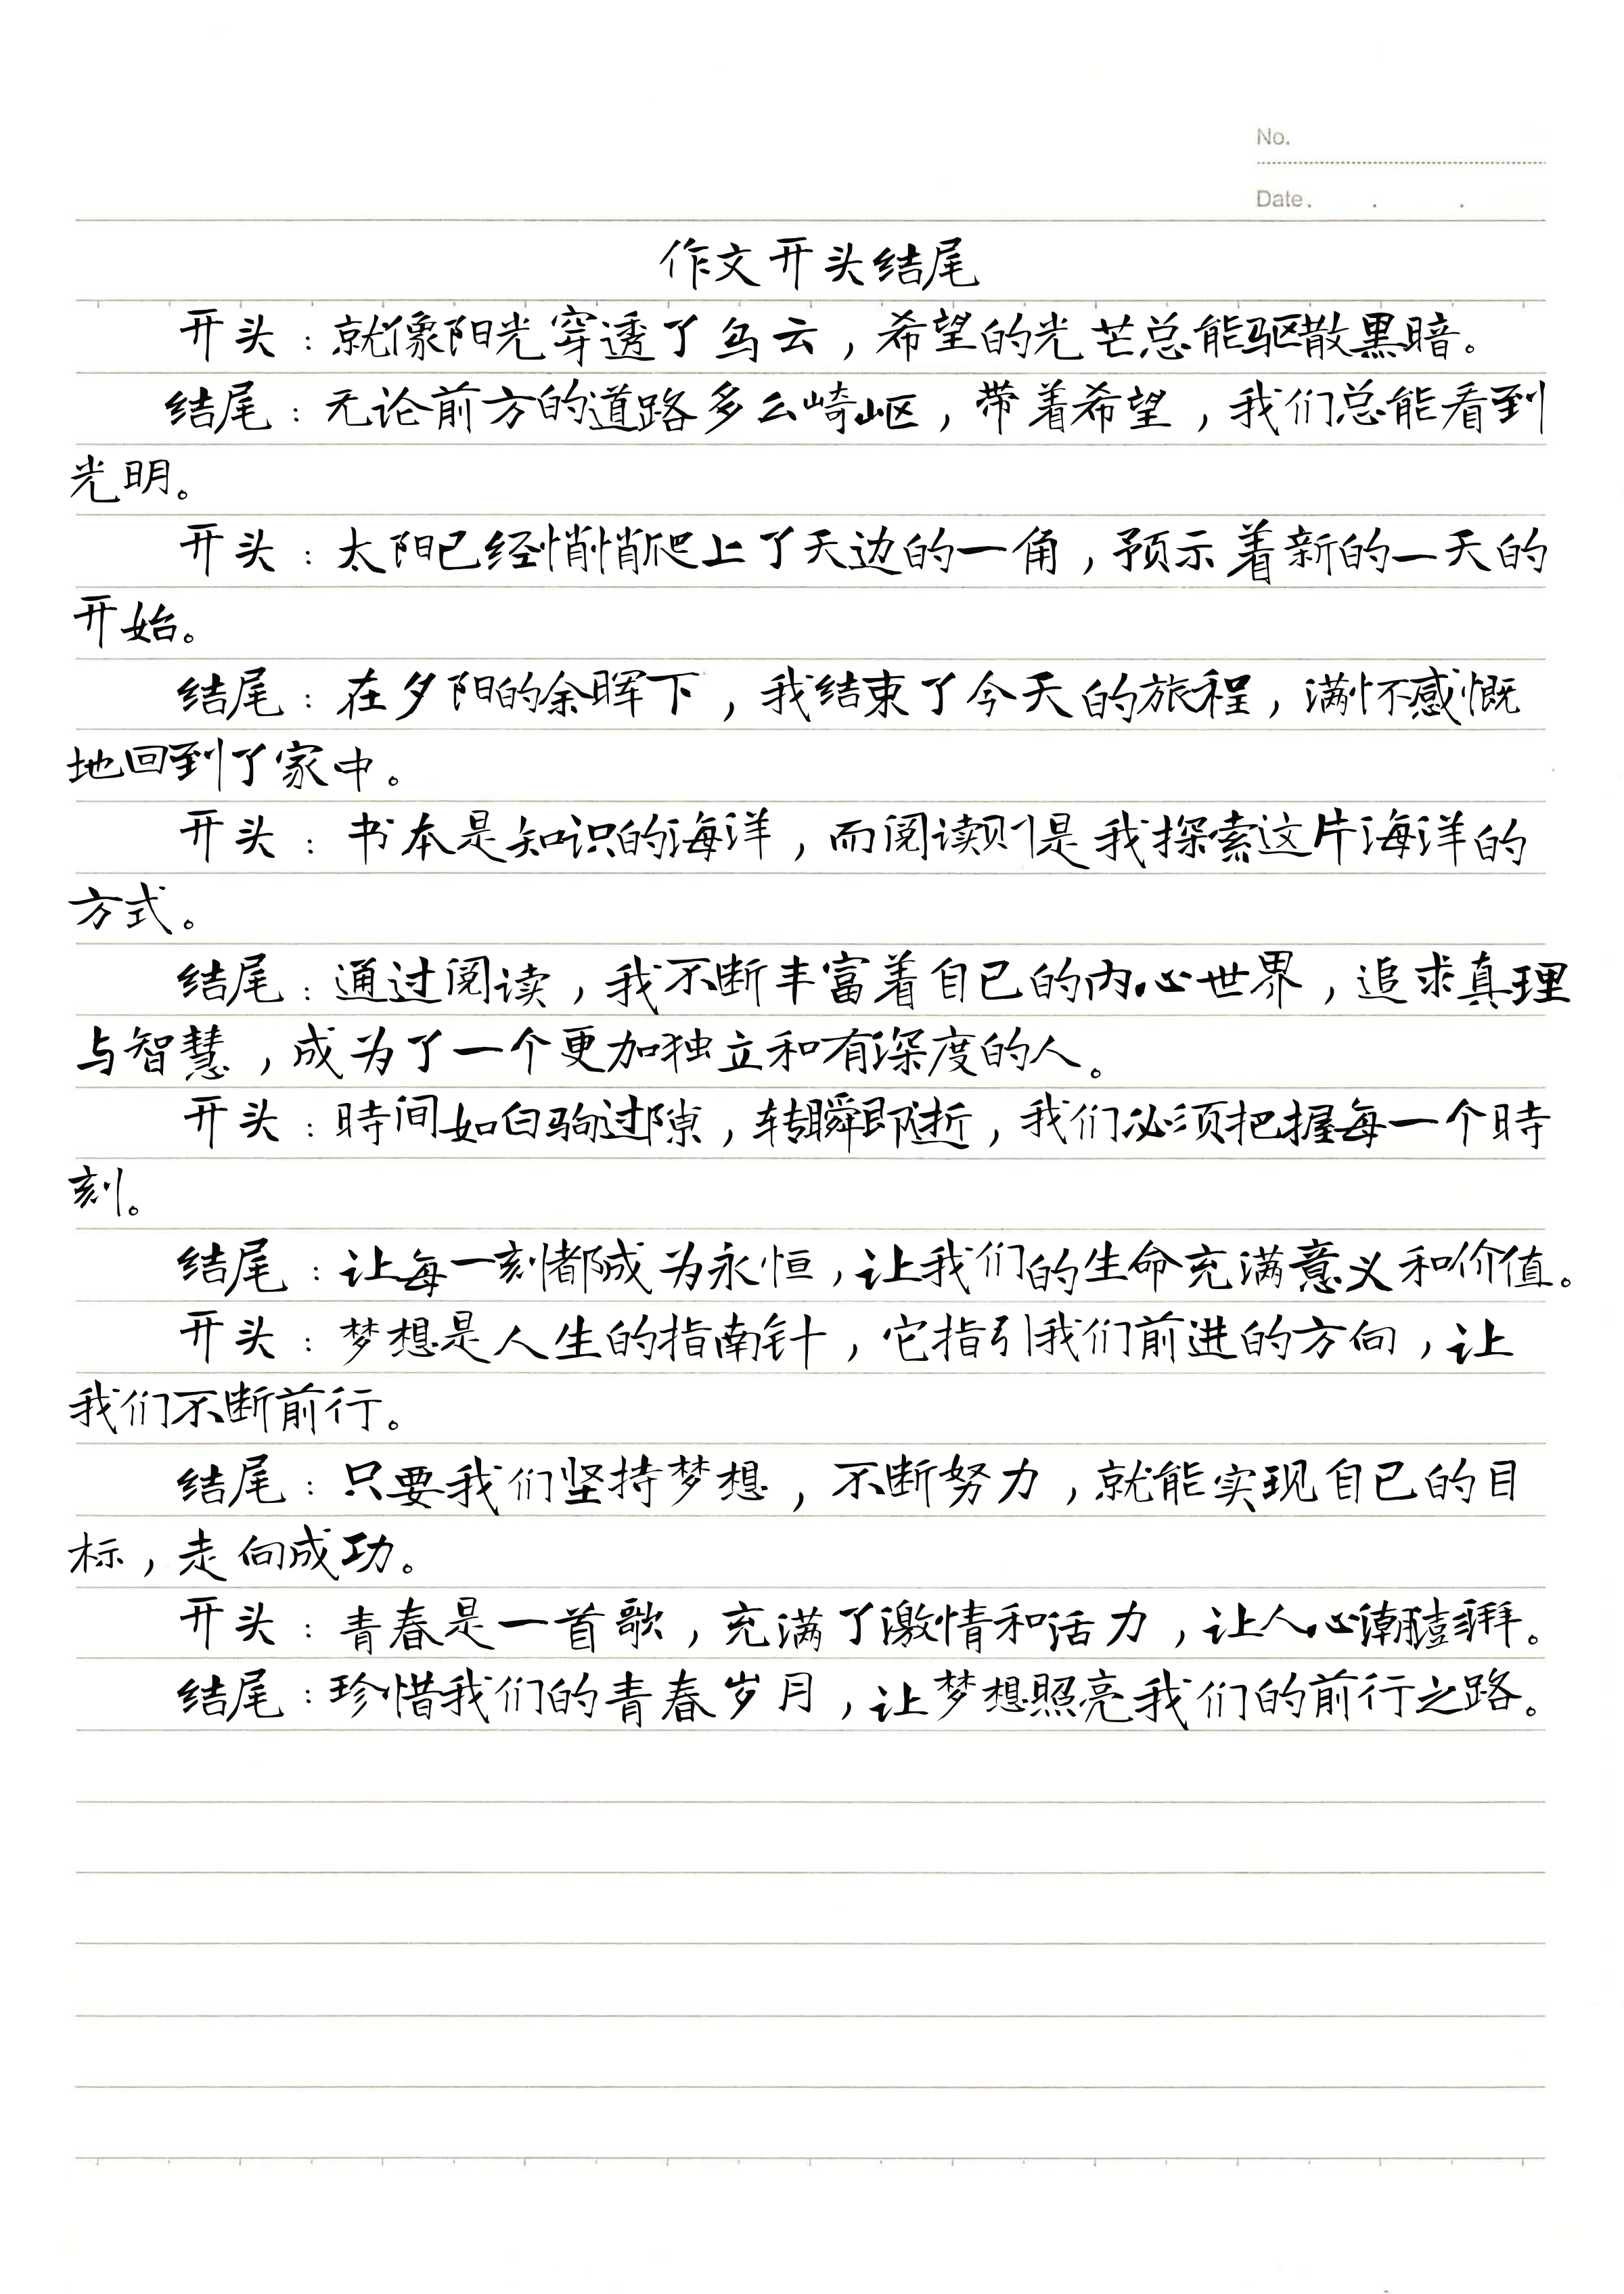 No.
Date.
作文开头结尾
开头：就像阳光穿透了乌云，希望的光芒总能驱散黑暗。
结尾：无论前方的道路多么崎岖，带着希望，我们总能看到
光明。
开头：太阳已经悄悄爬上了天边的一角，预示着新的一天的
开始。
结尾：在夕阳的余晖下，我结束了今天的旅程，满怀感慨
地回到了家中。
开头：书本是知识的海洋，而阅读则是我探索这片海洋的
方式。
结尾：通过阅读，我不断丰富着自己的内心世界，追求真理
与智慧，成为了一个更加独立和有深度的人。
开头：時间如白驹过隙，转瞬即逝，我们必须把握每一个時
刻。
结尾：让每一刻都成为永恒，让我们的生命充满意义和价值。
开头：梦想是人生的指南针，它指引我们前进的方向，让
我们不断前行。
结尾：只要我们坚持梦想，不断努力，就能实现自己的目
标，走向成功。
开头：青春是一首歌，充满了激情和活力，让人心潮澎湃。
结尾：珍惜我们的青春岁月，让梦想照亮我们的前行之路。